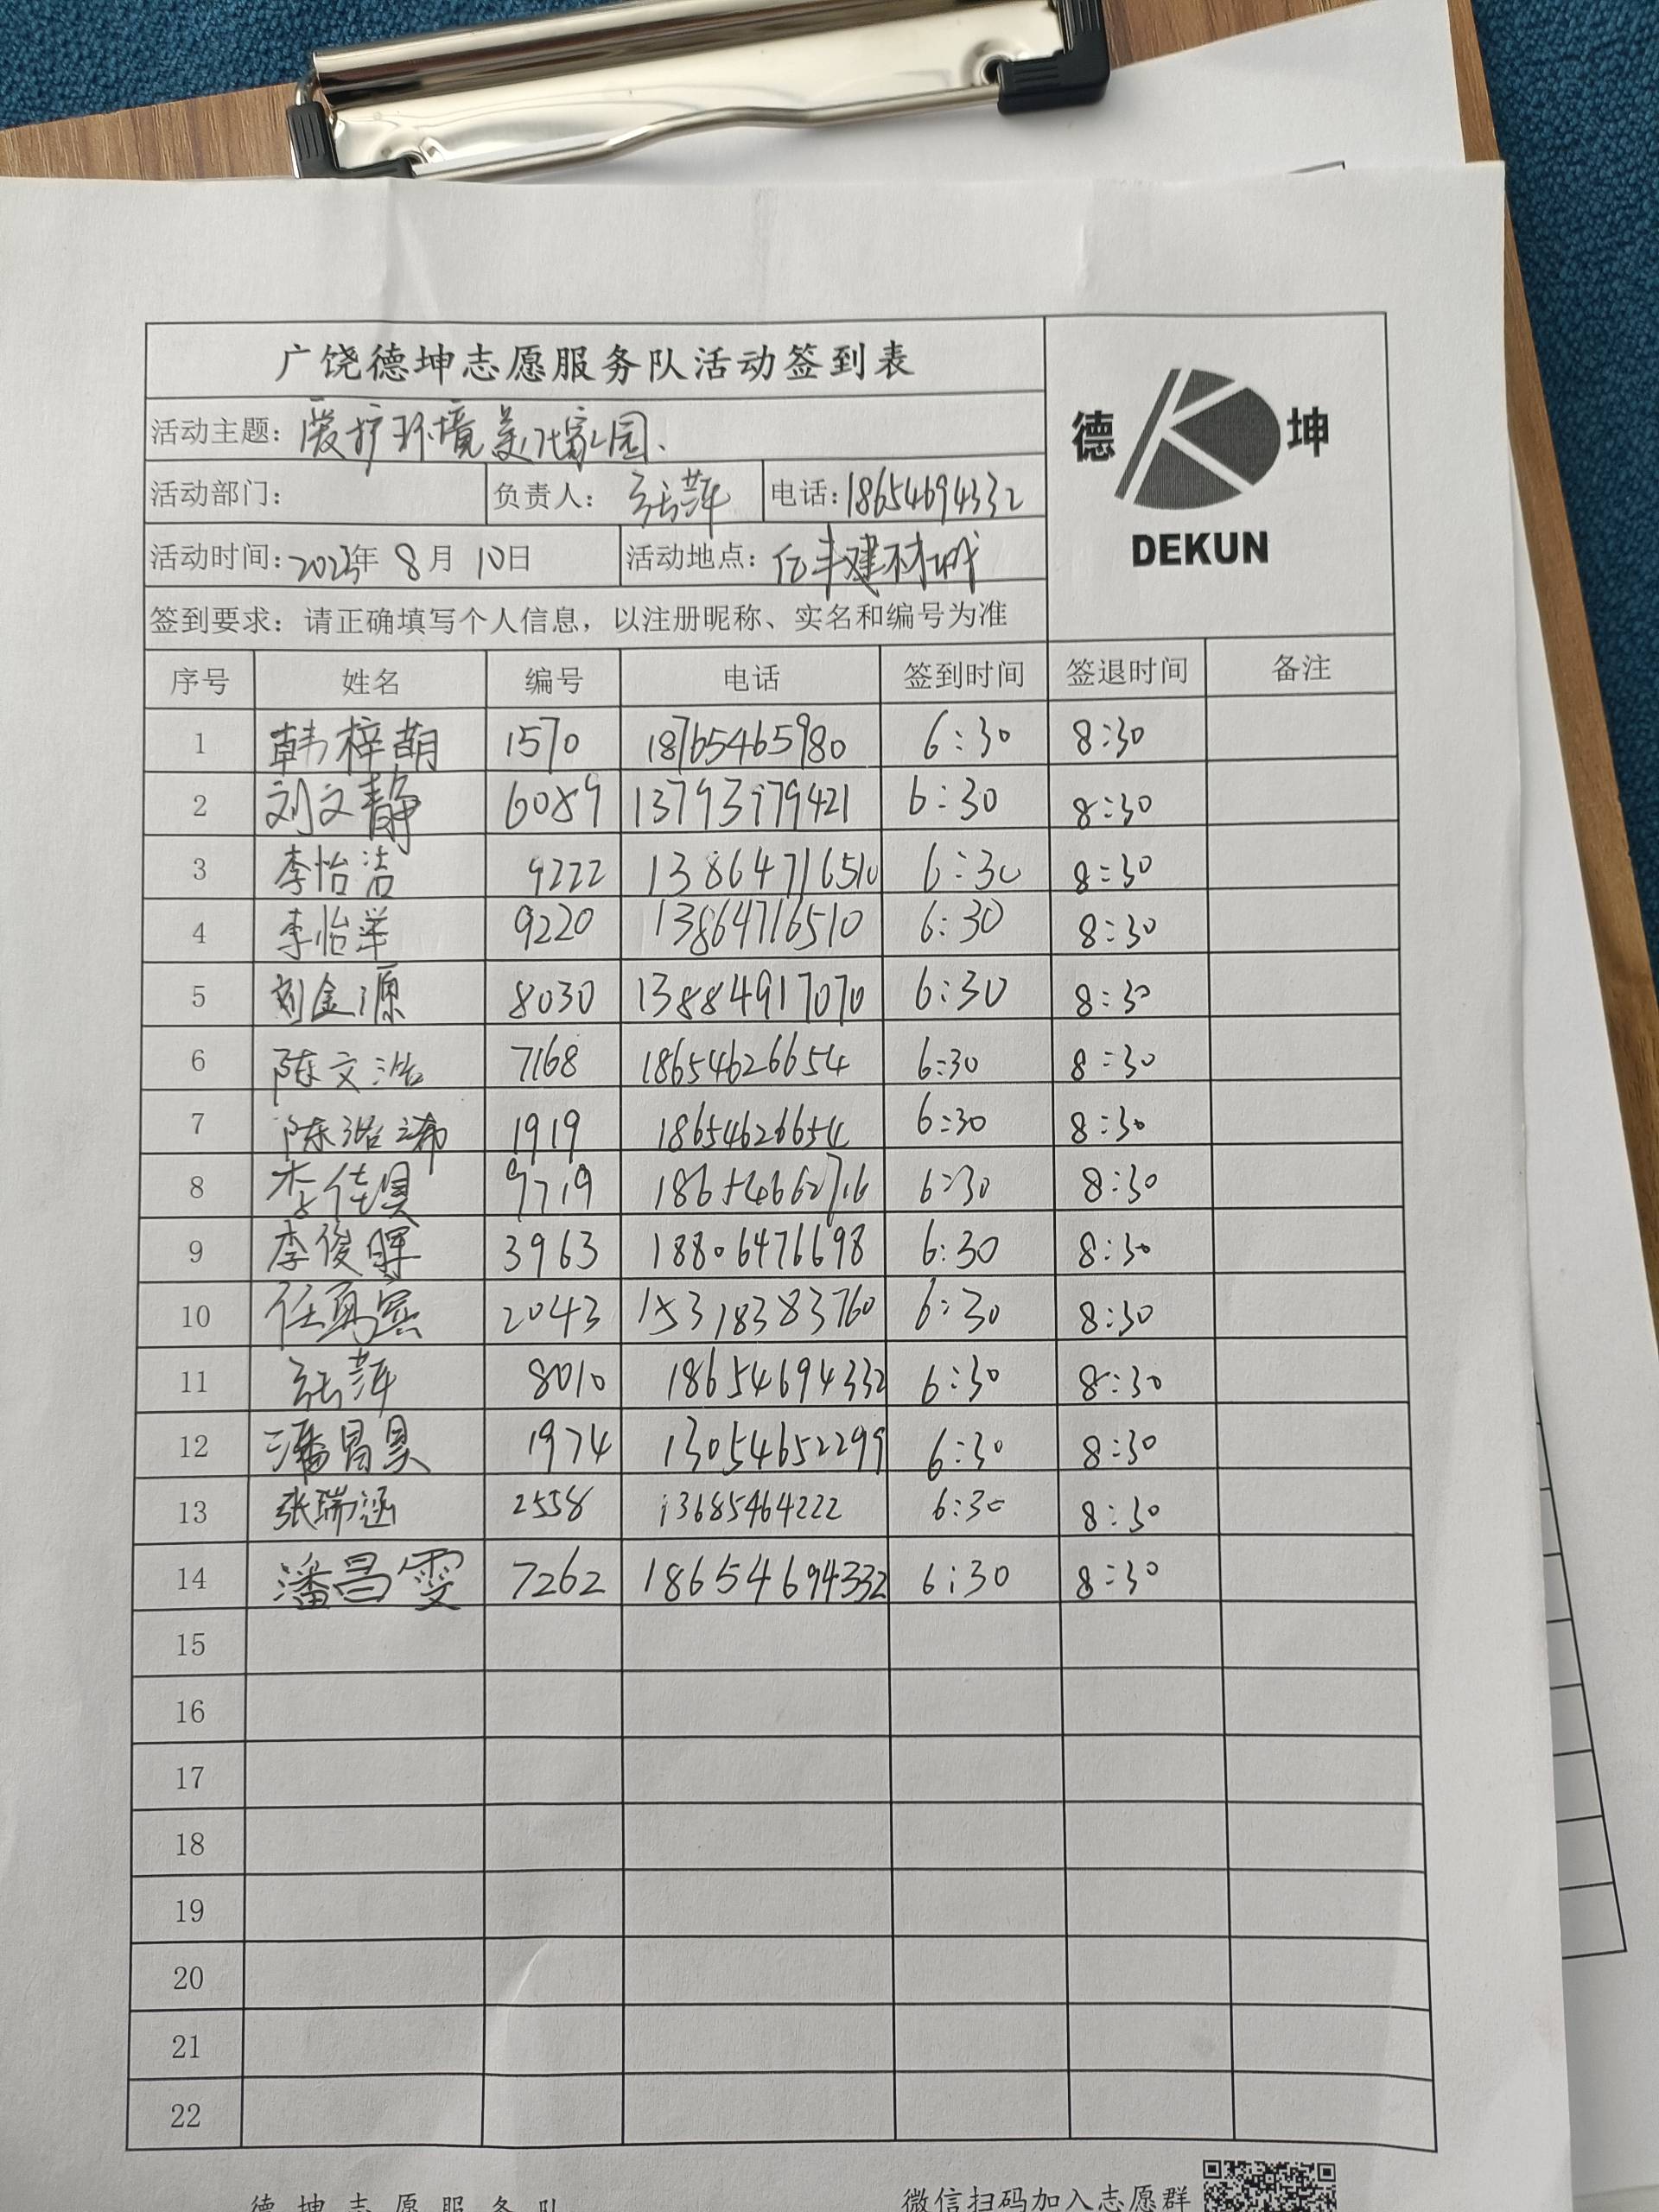 广饶德坤志愿服务队活动签到表
德 坤
DEKUN
活动主题：爱护环境美化家园、
活动部门： 负责人：张萍 电话：18654694332
活动时间：2023年 8月 10日 活动地点：亿丰建材城
签到要求：请正确填写个人信息，以注册昵称、实名和编号为准
序号 姓名 编号 电话 签到时间 签退时间 备注
1 韩梓萌 1570 18765465980 6:30 8:30
2 刘文静 6089 13793979421 6:30 8:30
3 李怡洁 9222 13864716510 6:30 8:30
4 李怡 9220 13864716510 6:30 8:30
5 刘金源 8030 13884917070 6:30 8:30
6 陈文浩 7168 18654626654 6:30 8:30
7 陈浩 1919 18654626654 6:30 8:30
8 李佳昊 9719 18654662716 6:30 8:30
9 李俊晖 3963 18806476698 6:30 8:30
10 任 2043 15318383760 6:30 8:30
11 张萍 8010 18654694332 6:30 8:30
12 潘昌昊 1974 13054652299 6:30 8:30
13 张瑞涵 2558 13685464222 6:30 8:30
14 潘昌雯 7262 18654694332 6:30 8:30
15
16
17
18
19
20
21
22
德坤志愿服务队 微信扫码加入志愿群